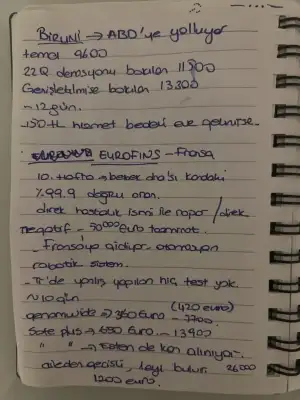 BİRUNİ → ABD'ye yolluyor
temel 9600
22Q delesyonu bakılan 11500
Genişletilmişe bakılan 13300
~12 gün.
-150 tl hizmet bedeli eve gelinirse.
EUROFINS - Fransa
10. Hafta → bebek dna'sı kandaki
%99.9 doğru oran.
direk hastalık ismi ile rapor / direk
negatif - 50000 Euro taahhüt.
_ Fransa'ya gidiyor otomasyon
robotik sistem.
_ Tr'de yanlış yapılan hiç test yok.
~10 gün
(420 euro)
genomwide → 360 Euro - 7700
Safe plus → 650 Euro - 13900
" " → Eşten de kan alınıyor.
aileden geçişli, 26000
1200 euro.